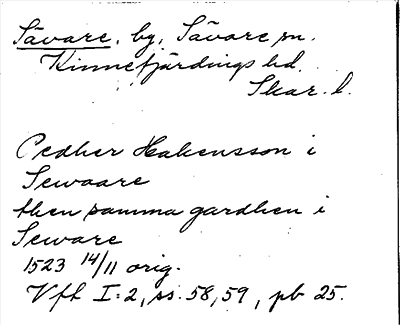 Sävare, by, Sävare sn.
Kinnefjärdings hd.
Skar. l.
Pedher Hakensson i
Sewaare
then samma gardhen i
Seware
1523 14/11 orig.
Vfh I:2, ss. 58, 59, pb 25.